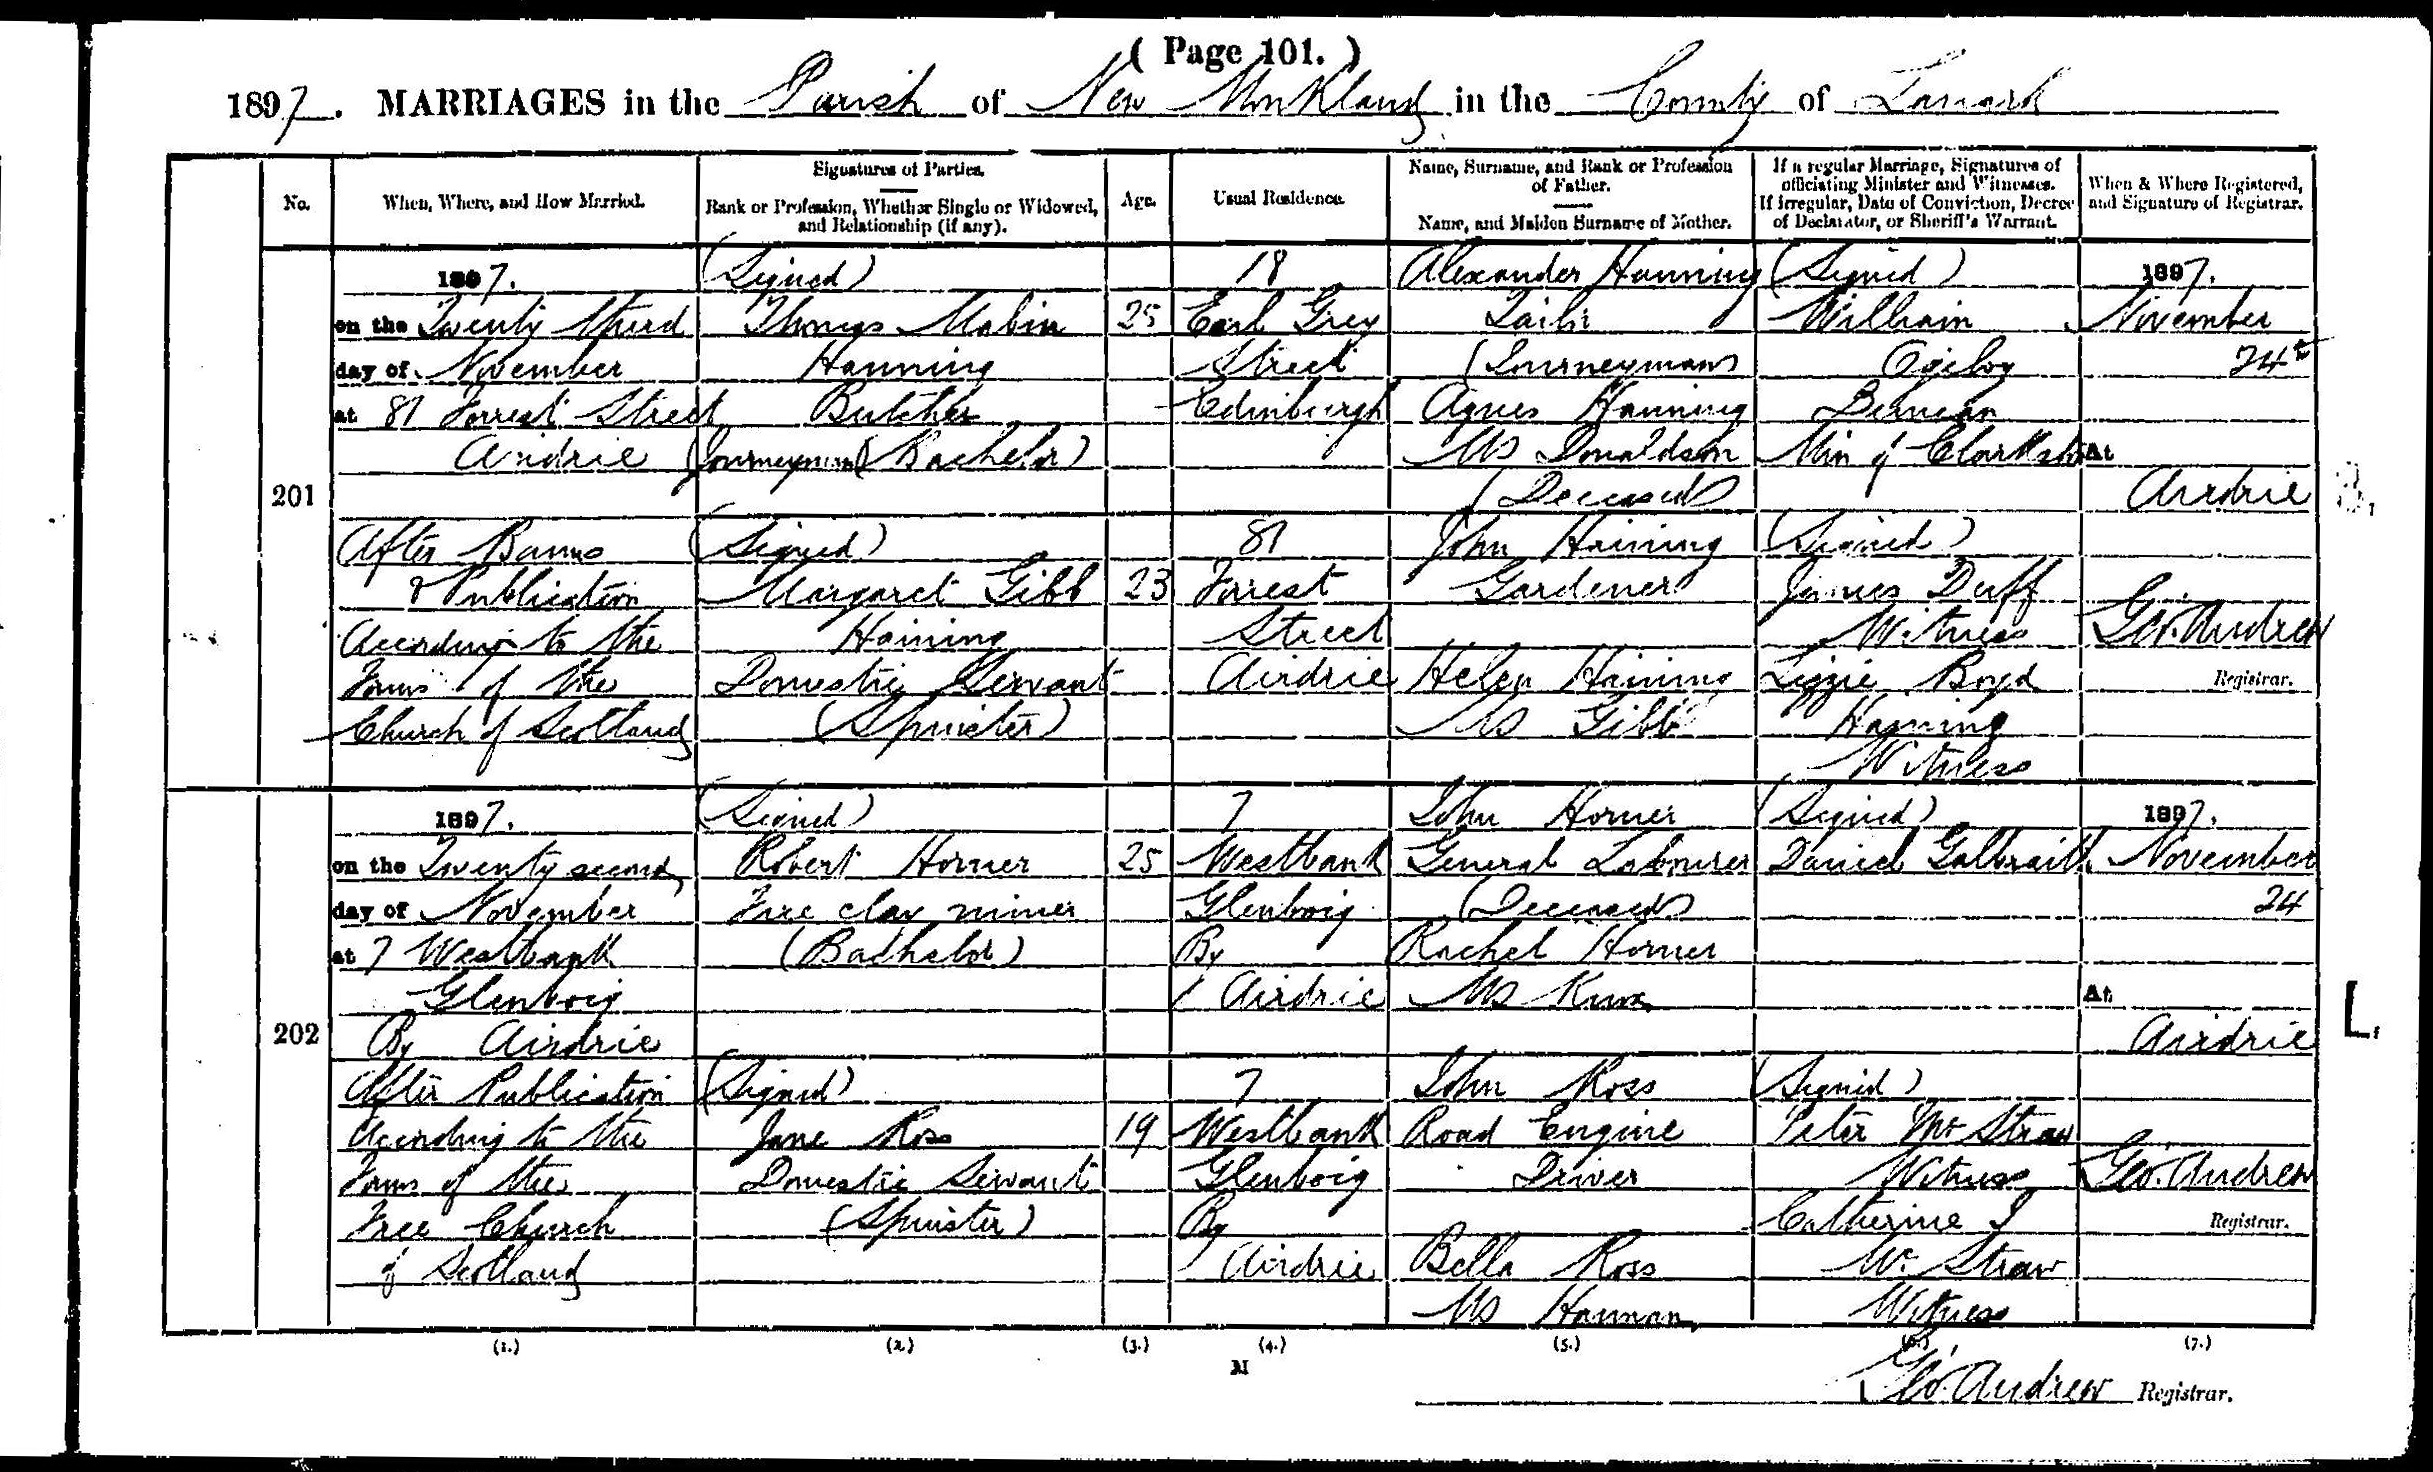 ( Page 101. )
1897. MARRIAGES in the Parish of New Monkland in the County of Lanark
No.
When, Where, and How Married.
Signatures of Parties.
Rank or Profession, Whether Single or Widowed,
and Relationship (if any).
Age.
Usual Residence.
Name, Surname, and Rank or Profession
of Father.
Name, and Maiden Surname of Mother.
If a regular Marriage, Signatures of
officiating Minister and Witnesses.
If irregular, Date of Conviction, Decree
of Declarator, or Sheriff's Warrant.
When & Where Registered,
and Signature of Registrar.
201
1897.
on the Twenty third
day of November
at 81 Forrest Street
Airdrie
After Banns
& Publication
According to the
Forms of the
Church of Scotland
(Signed)
Thomas Mabin
Hanning
Butcher
Journeyman (Bachelor)
(Signed)
Margaret Gibb
Haining
Domestic Servant
(Spinster)
25
23
18
Earl Grey
Street
Edinburgh
81
Forrest
Street
Airdrie
Alexander Hanning
Tailor
(Journeyman)
Agnes Hanning
MS Donaldson
(Deceased)
John Haining
Gardener
Helen Haining
MS Gibb
(Signed)
William
Ogilvy
Duncan
Min of Clarkston
(Signed)
James Duff
Witness
Lizzie Boyd
Hanning
Witness
1897.
November
24th
At
Airdrie
Geo. Andrew
Registrar.
202
1897.
on the Twenty second
day of November
at 7 Westbank
Glenboig
By Airdrie
After Publication
According to the
Forms of the
Free Church
of Scotland
(Signed)
Robert Horner
Fire clay miner
(Bachelor)
(Signed)
Jane Ross
Domestic Servant
(Spinster)
25
19
7
Westbank
Glenboig
By
Airdrie
7
Westbank
Glenboig
By
Airdrie
John Horner
General Labourer
(Deceased)
Rachel Horner
MS Knox
John Ross
Road Engine
Driver
Bella Ross
MS Hannan
(Signed)
Daniel Galbraith
(Signed)
Peter Mc Straw
Witness
Catherine J
Mc Straw
Witness
1897.
November
24
At
Airdrie
Geo. Andrew
Registrar.
L.
(1.) (2.) (3.) (4.) (5.) (6.) (7.)
M
Geo. Andrew Registrar.